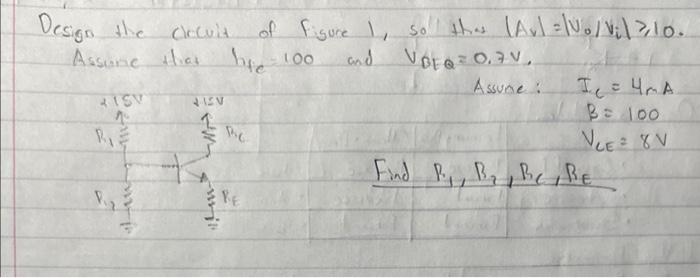 Design the circuit of figure 1, so that |Av|=|Vo/Vi| ≥ 10.
Assume that hfe = 100 and VBEQ = 0.7V.
Assume: Ic = 4mA
B = 100
VCE = 8V
Find R1, R2, Rc, RE
+15V +15V
R1 Rc
R2 RE